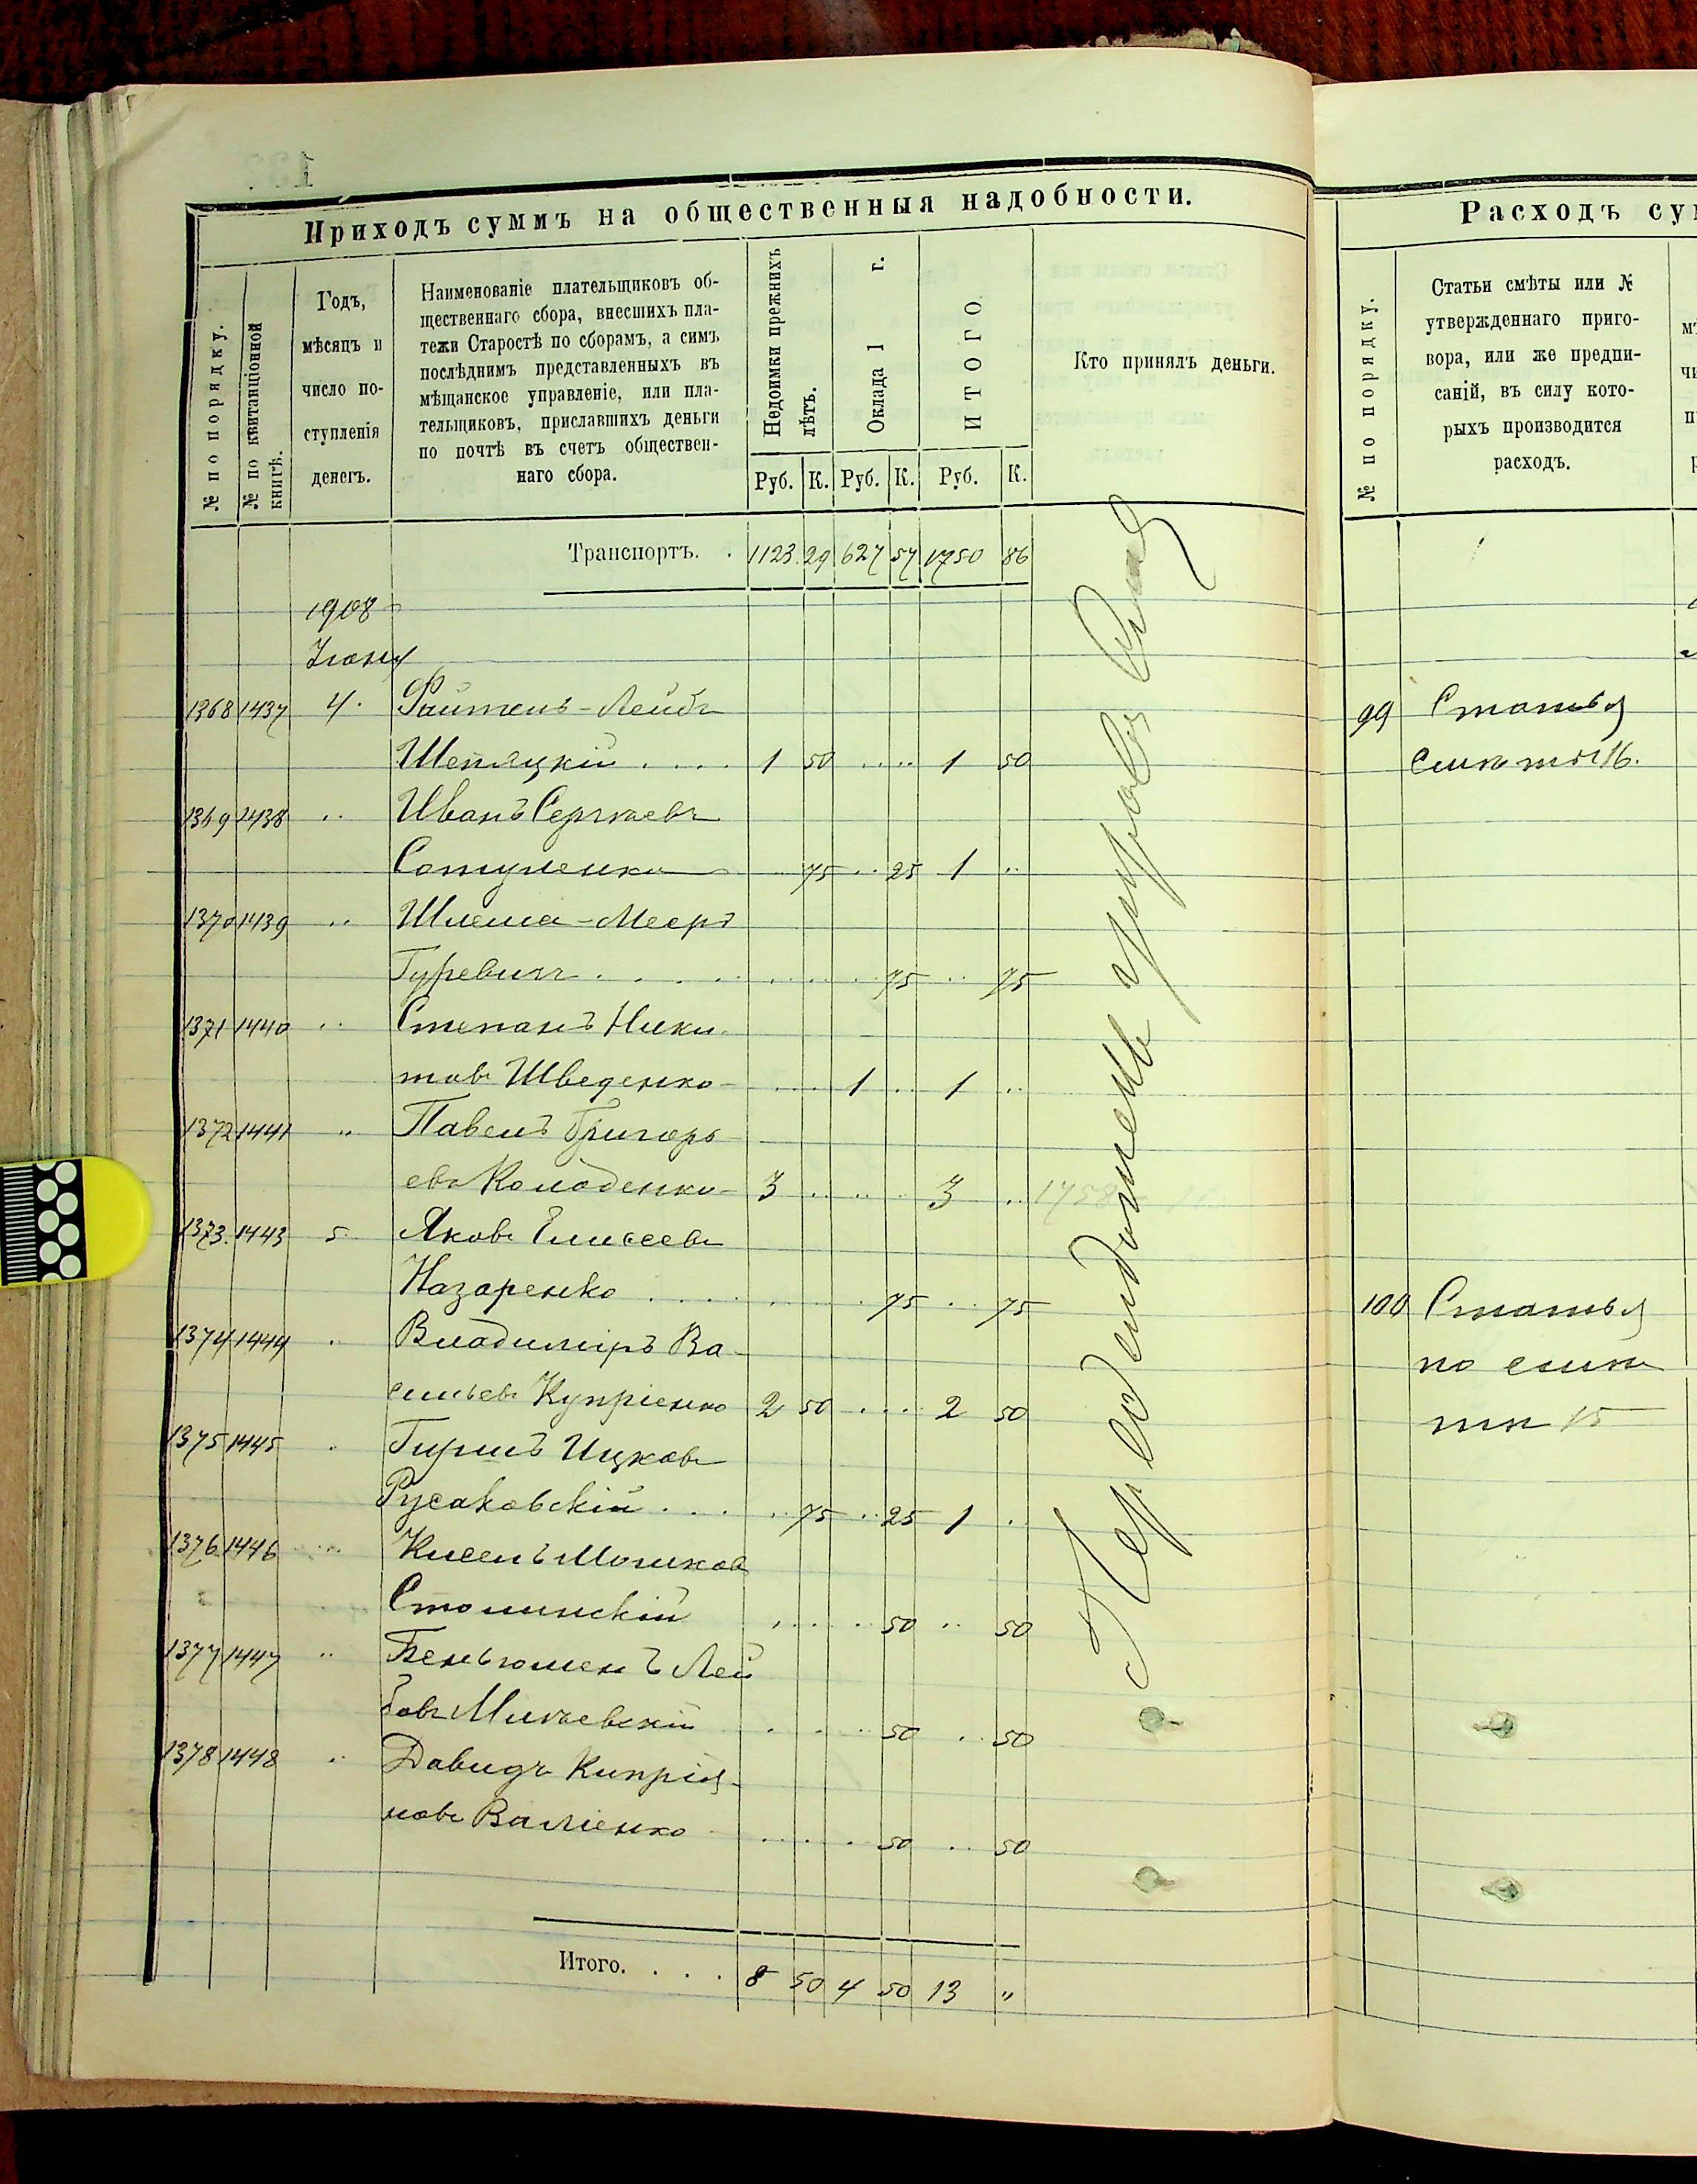 Приходъ суммъ на общественныя надобности.
№ по порядку.
№ по квитанціонной книгѣ.
Годъ,
мѣсяцъ и
число по-
ступленія
денегъ.
Наименованіе плательщиковъ об-
щественнаго сбора, внесшихъ пла-
тежи Старостѣ по сборамъ, а симъ
послѣднимъ представленныхъ въ
мѣщанское управленіе, или пла-
тельщиковъ, приславшихъ деньги
по почтѣ въ счетъ обществен-
наго сбора.
Недоимки прежнихъ лѣтъ.
Оклада 1 г.
ИТОГО
Кто принялъ деньги.
Руб. К. Руб. К. Руб. К.
Транспортъ. . 1123 29 627 57 1750 86
1908
Іюня
1368 1437 4. Файтель-Лейба
1 50 1 50
1369 1438 Иванъ Сергѣевъ
75 25 1
1370 1439 Шлема-Мееръ
Гуревичъ 75 75
1371 1440 Степанъ Ники-
товъ Шведенко 1 1
1372 1441 Павелъ Григорь
евъ Колоденко 3 3
1373. 1443 5 Яковъ Елисеевъ
Назаренко 75 75
1374 1444 Владиміръ Ва-
сильевъ Купріенко 2 50 2 50
1375 1445 Гиршъ Ицковъ
Русаковскій 75 25 1
1376 1446 Кисель Мошковъ
Столинскій 50 50
1377 1447 Беньюменъ Лей
бовъ 50 50
1378 1448 Давидъ Кипрія-
новъ 50 50
Итого. . . . 8 50 4 50 13 "
Расходъ су
№ по порядку.
Статьи смѣты или №
утвержденнаго приго-
вора, или же предпи-
саній, въ силу кото-
рыхъ производится
расходъ.
99 Статья
смѣты 16.
100 Статья
по смѣ
тѣ 15